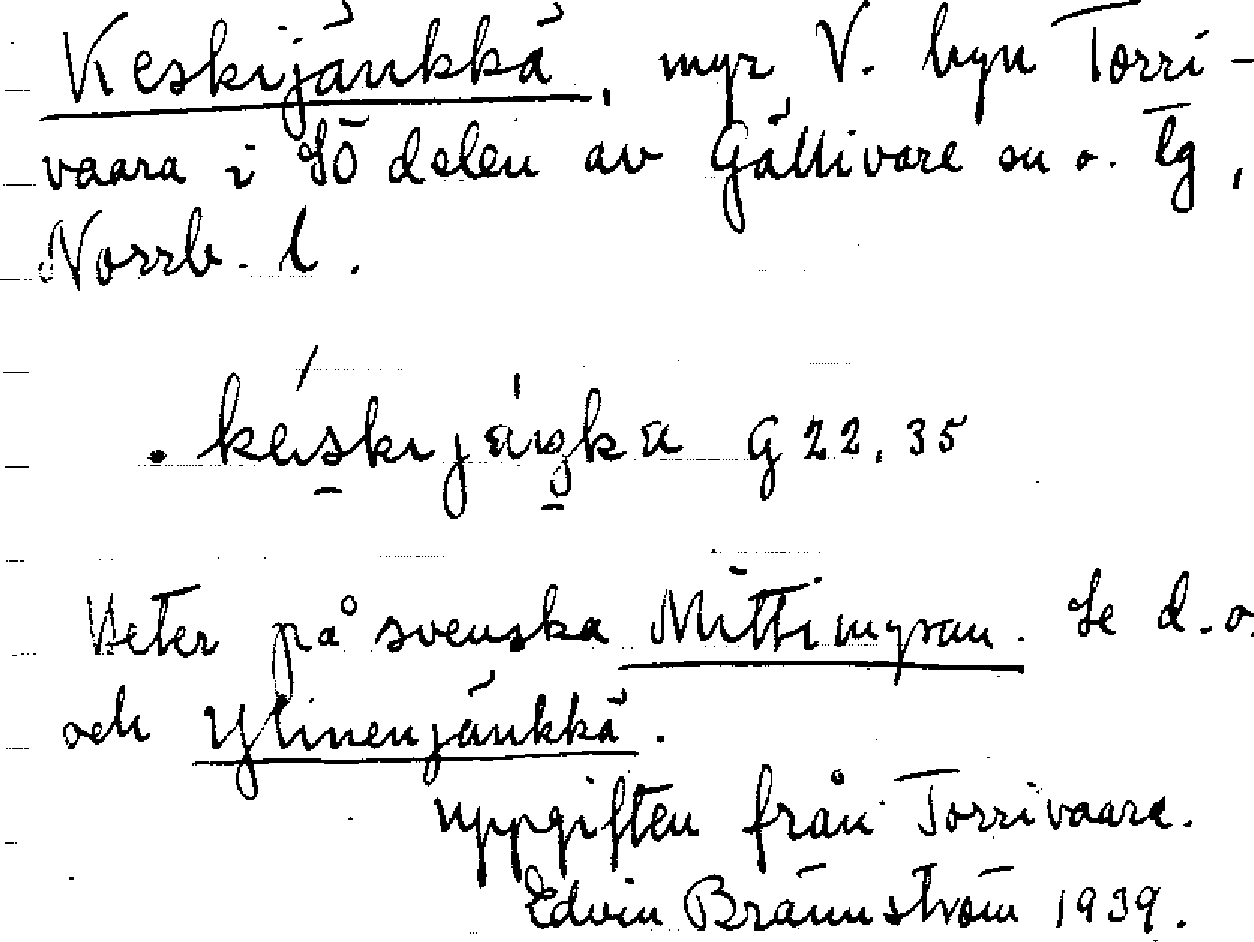 Keskijänkkä, myr V. byn Torri-
vaara i SÖ delen av Gällivare sn o. tg,
Norrb. l.
. késki̱jäŋ̱kä G 22.35
Heter på svenska Mittimyran. Se d.o.
och Ylinenjänkkä.
uppgiften från Torrivaara.
Edvin Brännström 1939.